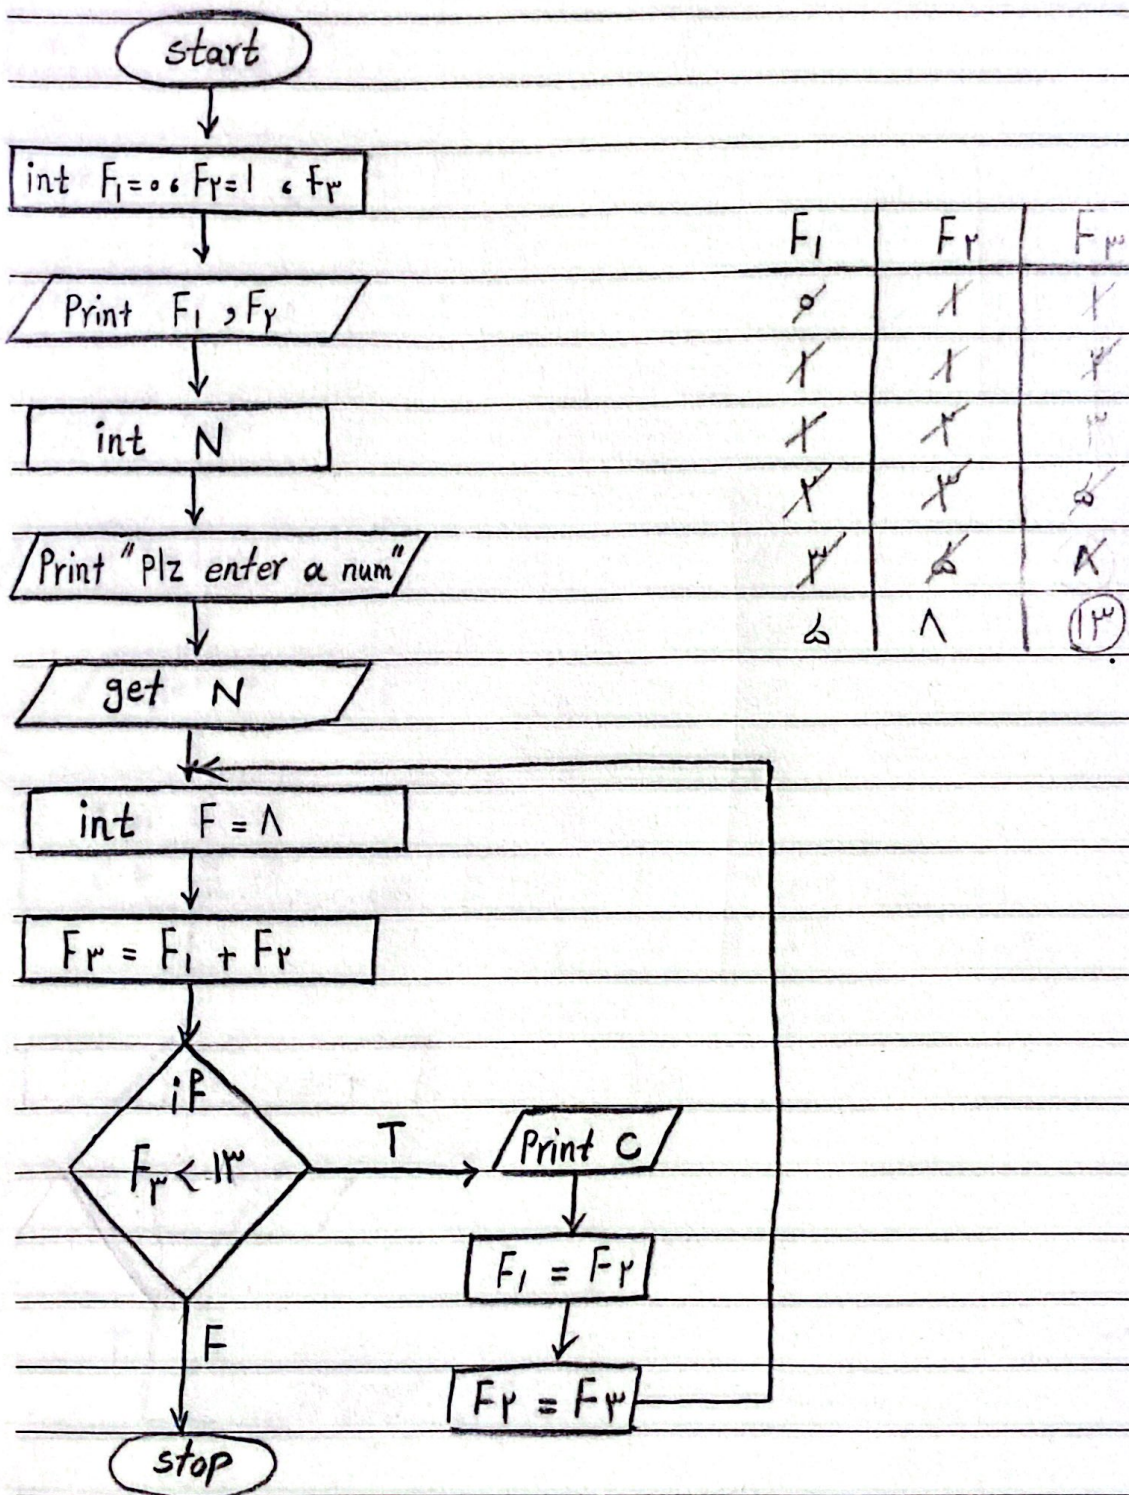 start
int F۱=۰، F۲=۱ ، F۳
Print F۱ , F۲
int N
Print "Plz enter a num"
get N
int F = ۸
F۳ = F۱ + F۲
if
F۳ < ۱۳
T
Print C
F۱ = F۲
F
F۲ = F۳
stop
F۱ F۲ F۳
۰ ۱ ۱
۱ ۱ ۲
۱ ۲ ۳
۲ ۳ ۵
۳ ۵ ۸
۵ ۸ ۱۳